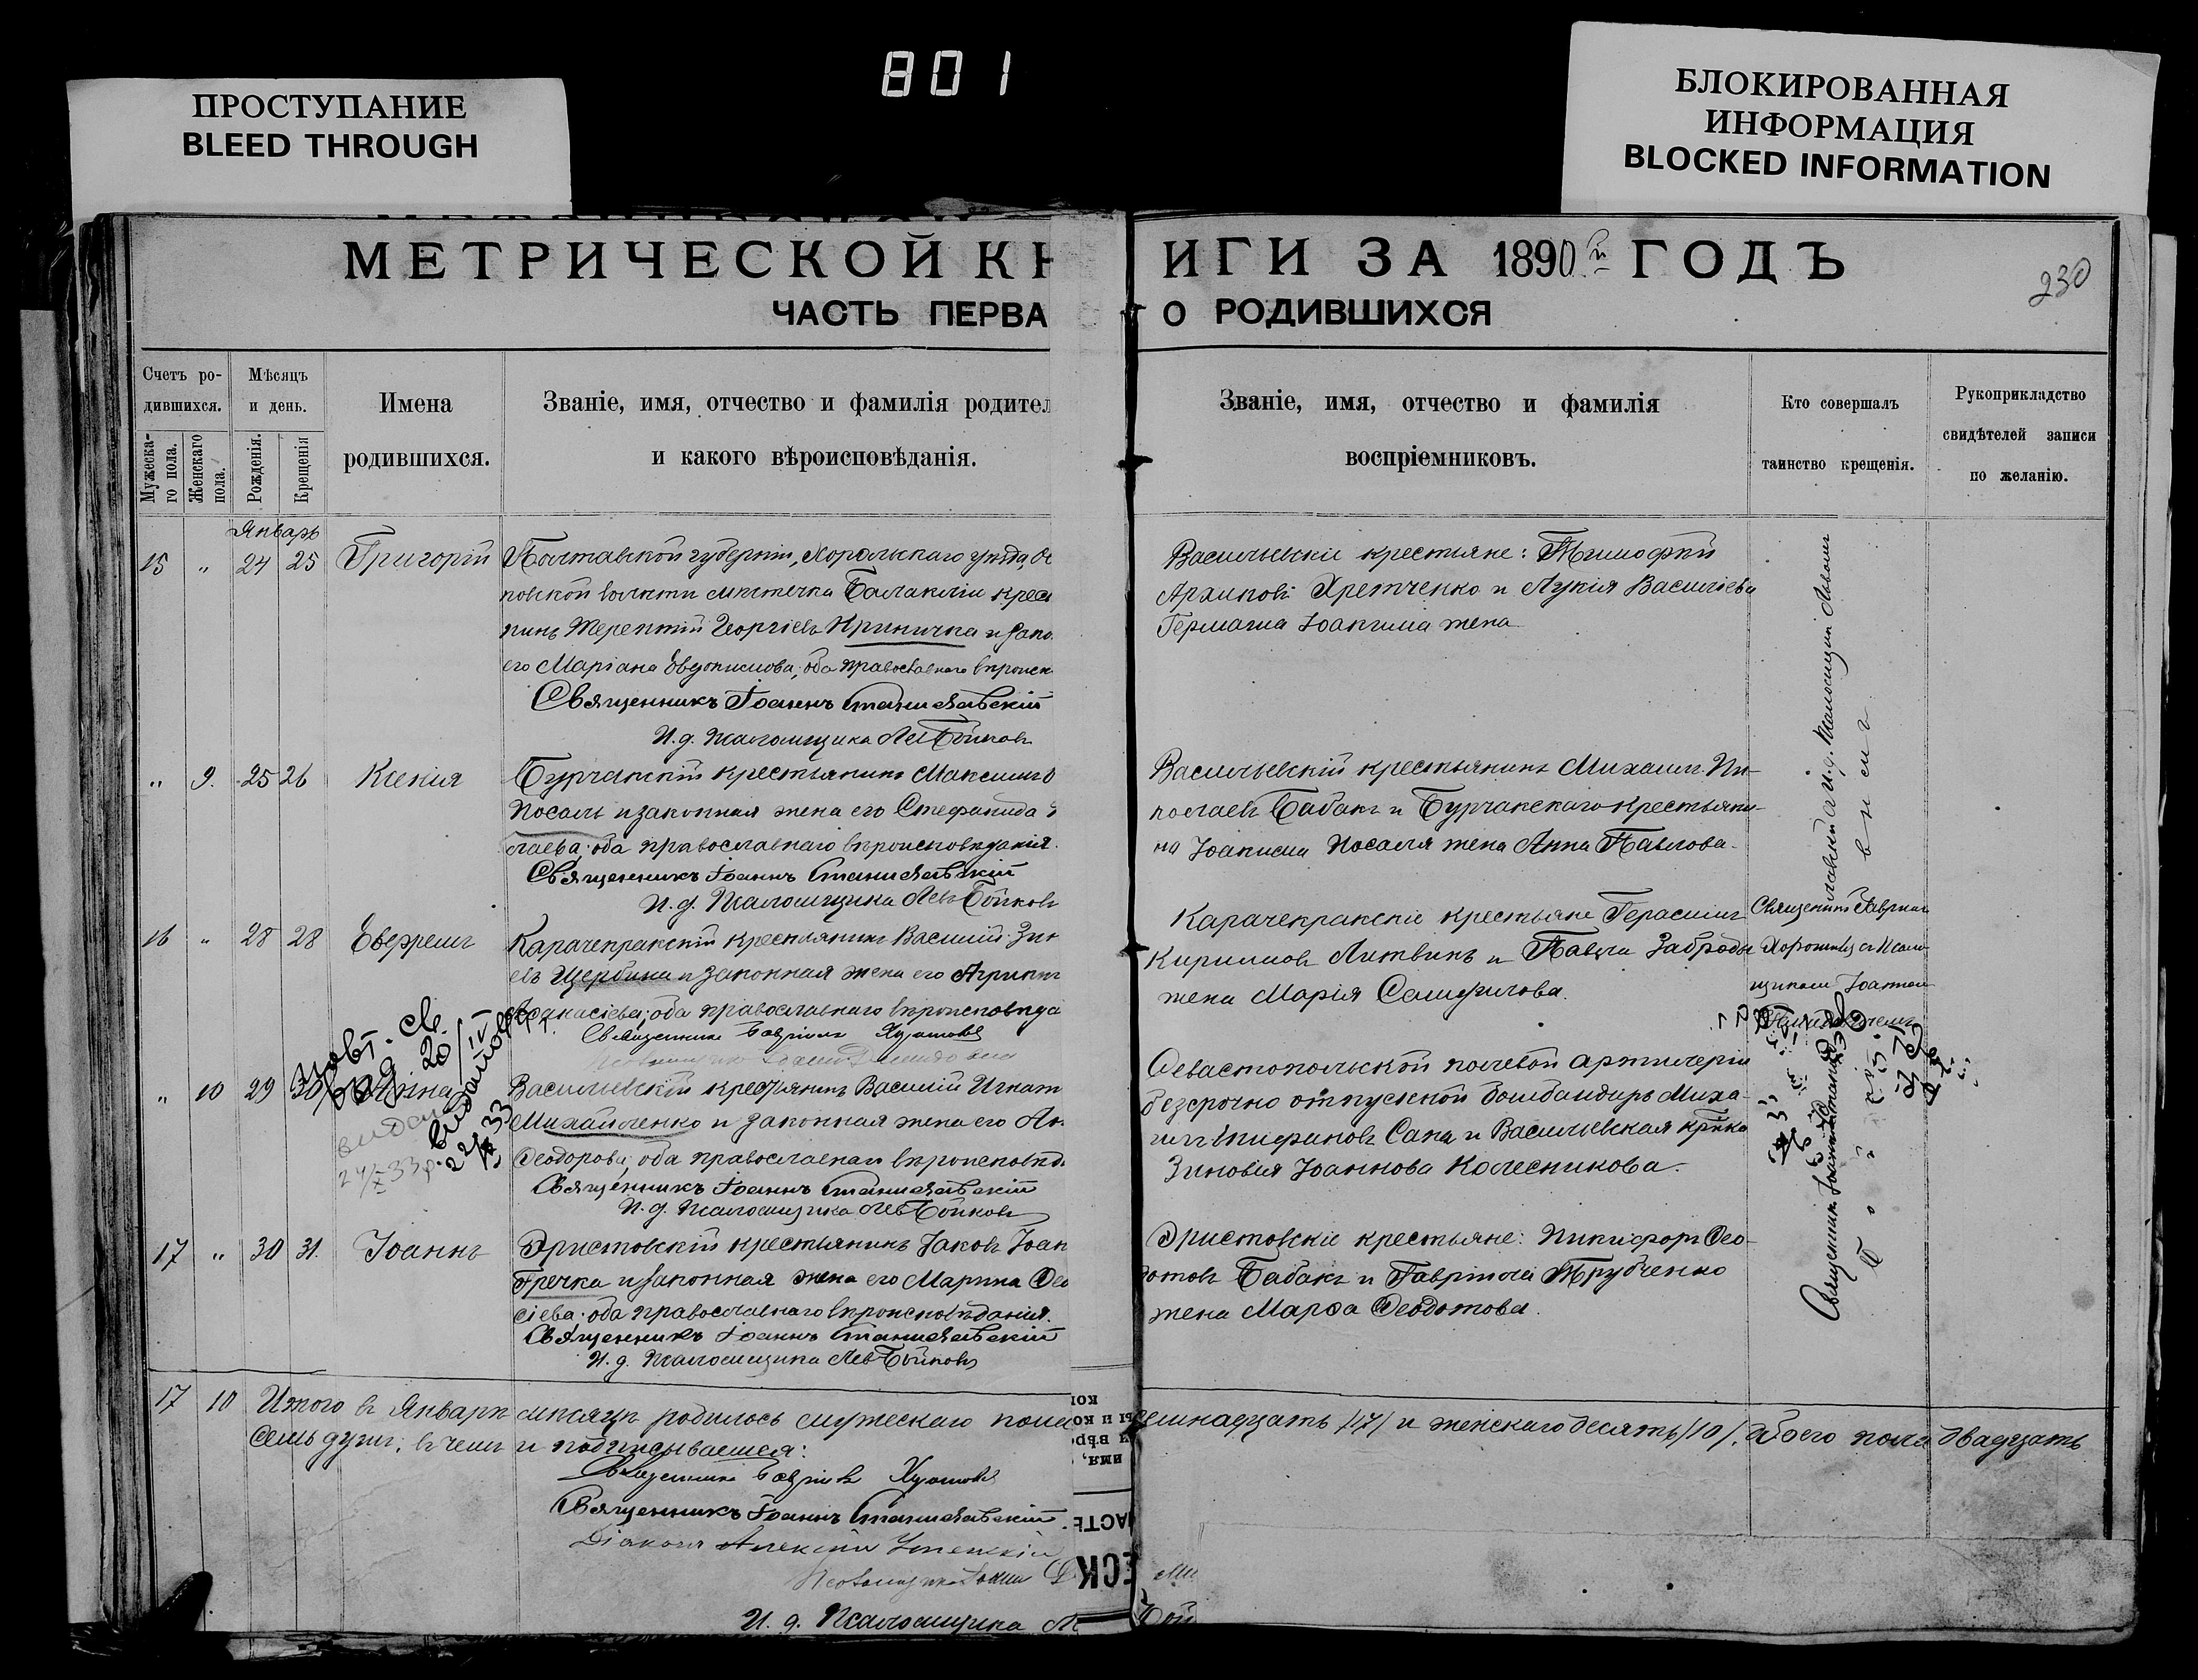 801
ПРОСТУПАНИЕ
BLEED THROUGH
БЛОКИРОВАННАЯ
ИНФОРМАЦИЯ
BLOCKED INFORMATION
МЕТРИЧЕСКОЙ КН
ИГИ ЗА 1890й ГОДЪ
230
ЧАСТЬ ПЕРВА
О РОДИВШИХСЯ
Счетъ ро-
дившихся.
Мужеска-
го пола.
Женскаго
пола.
Мѣсяцъ
и день.
Рожденія.
Крещенія
Имена
родившихся.
Званіе, имя, отчество и фамилія родител
и какого вѣроисповѣданія.
Званіе, имя, отчество и фамилія
воспріемниковъ.
Кто совершалъ
таинство крещенія.
Рукоприкладство
свидѣтелей записи
по желанію.
Январь
15 " 24 25 Григорій
Полтавской губерніи, Хорольскаго уѣзда,
повской волости мѣстечка Балаклiи крес
нинъ Терентій Георгіевъ Криничка и зако
его Маріана Евдокимова; оба православнаго вѣроисп
Священникъ Іоаннъ Станиславскій
И. д. Псаломщика Левъ Бойковъ
Васильевскіе крестьяне: Тимофей
Архиповъ Хретченко и Лукія Васильева
Іоакима жена
" 9. 25 26 Ксенія
Бурчакскій крестьянинъ Максимъ
Носаль и законная жена его Стефанида
лаева; оба православнаго вѣроисповѣданія.
Священникъ Іоаннъ Станиславскій
И. д. Псаломщика Левъ Бойковъ
Васильевскій крестьянинъ Михаилъ Ни-
колаевъ Бабакъ и Бурчакскаго крестьяни-
на Іоакима Носаля жена Анна Павлова
16 " 28 28 Ефремъ
Карачекракскій крестьянинъ Василій Зин
евъ Щербина и законная жена его Агрипп
Афанасіева; оба православнаго вѣроисповѣда
Священникъ Гавріилъ
Карачекракскіе крестьяне Герасимъ
Кирилловъ Литвинъ и Павла Заброды
жена Марія Самуилова.
Священникъ Гавріилъ
съ Псалом-
щикомъ Іоанномъ
" 10 29 30 Анна
Васильевскій крестьянинъ Василій Игнат
Михайленко и законная жена его Ан
Феодорова; оба православнаго вѣроисповѣд
Священникъ Іоаннъ Станиславскій
И. д. Псаломщика Левъ Бойковъ
Севастопольской полевой артилеріи
безсрочно отпускной бомбандиръ Миха-
илъ Епифановъ Сака и Васильевская кр-нка
Зиновія Іоаннова Колесникова.
17 " 30 31. Іоаннъ
Эристовскій крестьянинъ Іаковъ Іоан
Гречка и законная жена его Марина Фео
сіева; оба православнаго вѣроисповѣданія.
Священникъ Іоаннъ Станиславскій
И. д. Псаломщика Левъ Бойковъ
Эристовскіе крестьяне: Никифоръ Фео-
дотовъ Бабакъ и Гавріила Трубченко
жена Марфа Феодотова.
17 10 Итого въ Январѣ мѣсяцѣ родилось мужескаго пола
семнадцать /17/ и женскаго десять /10/. Обоего пола двадцать
семь душъ; въ чемъ и подписываемся:
Священникъ Гавріилъ
Священникъ Іоаннъ Станиславскій
Діаконъ Алексій Успенскій
И. д. Псаломщика